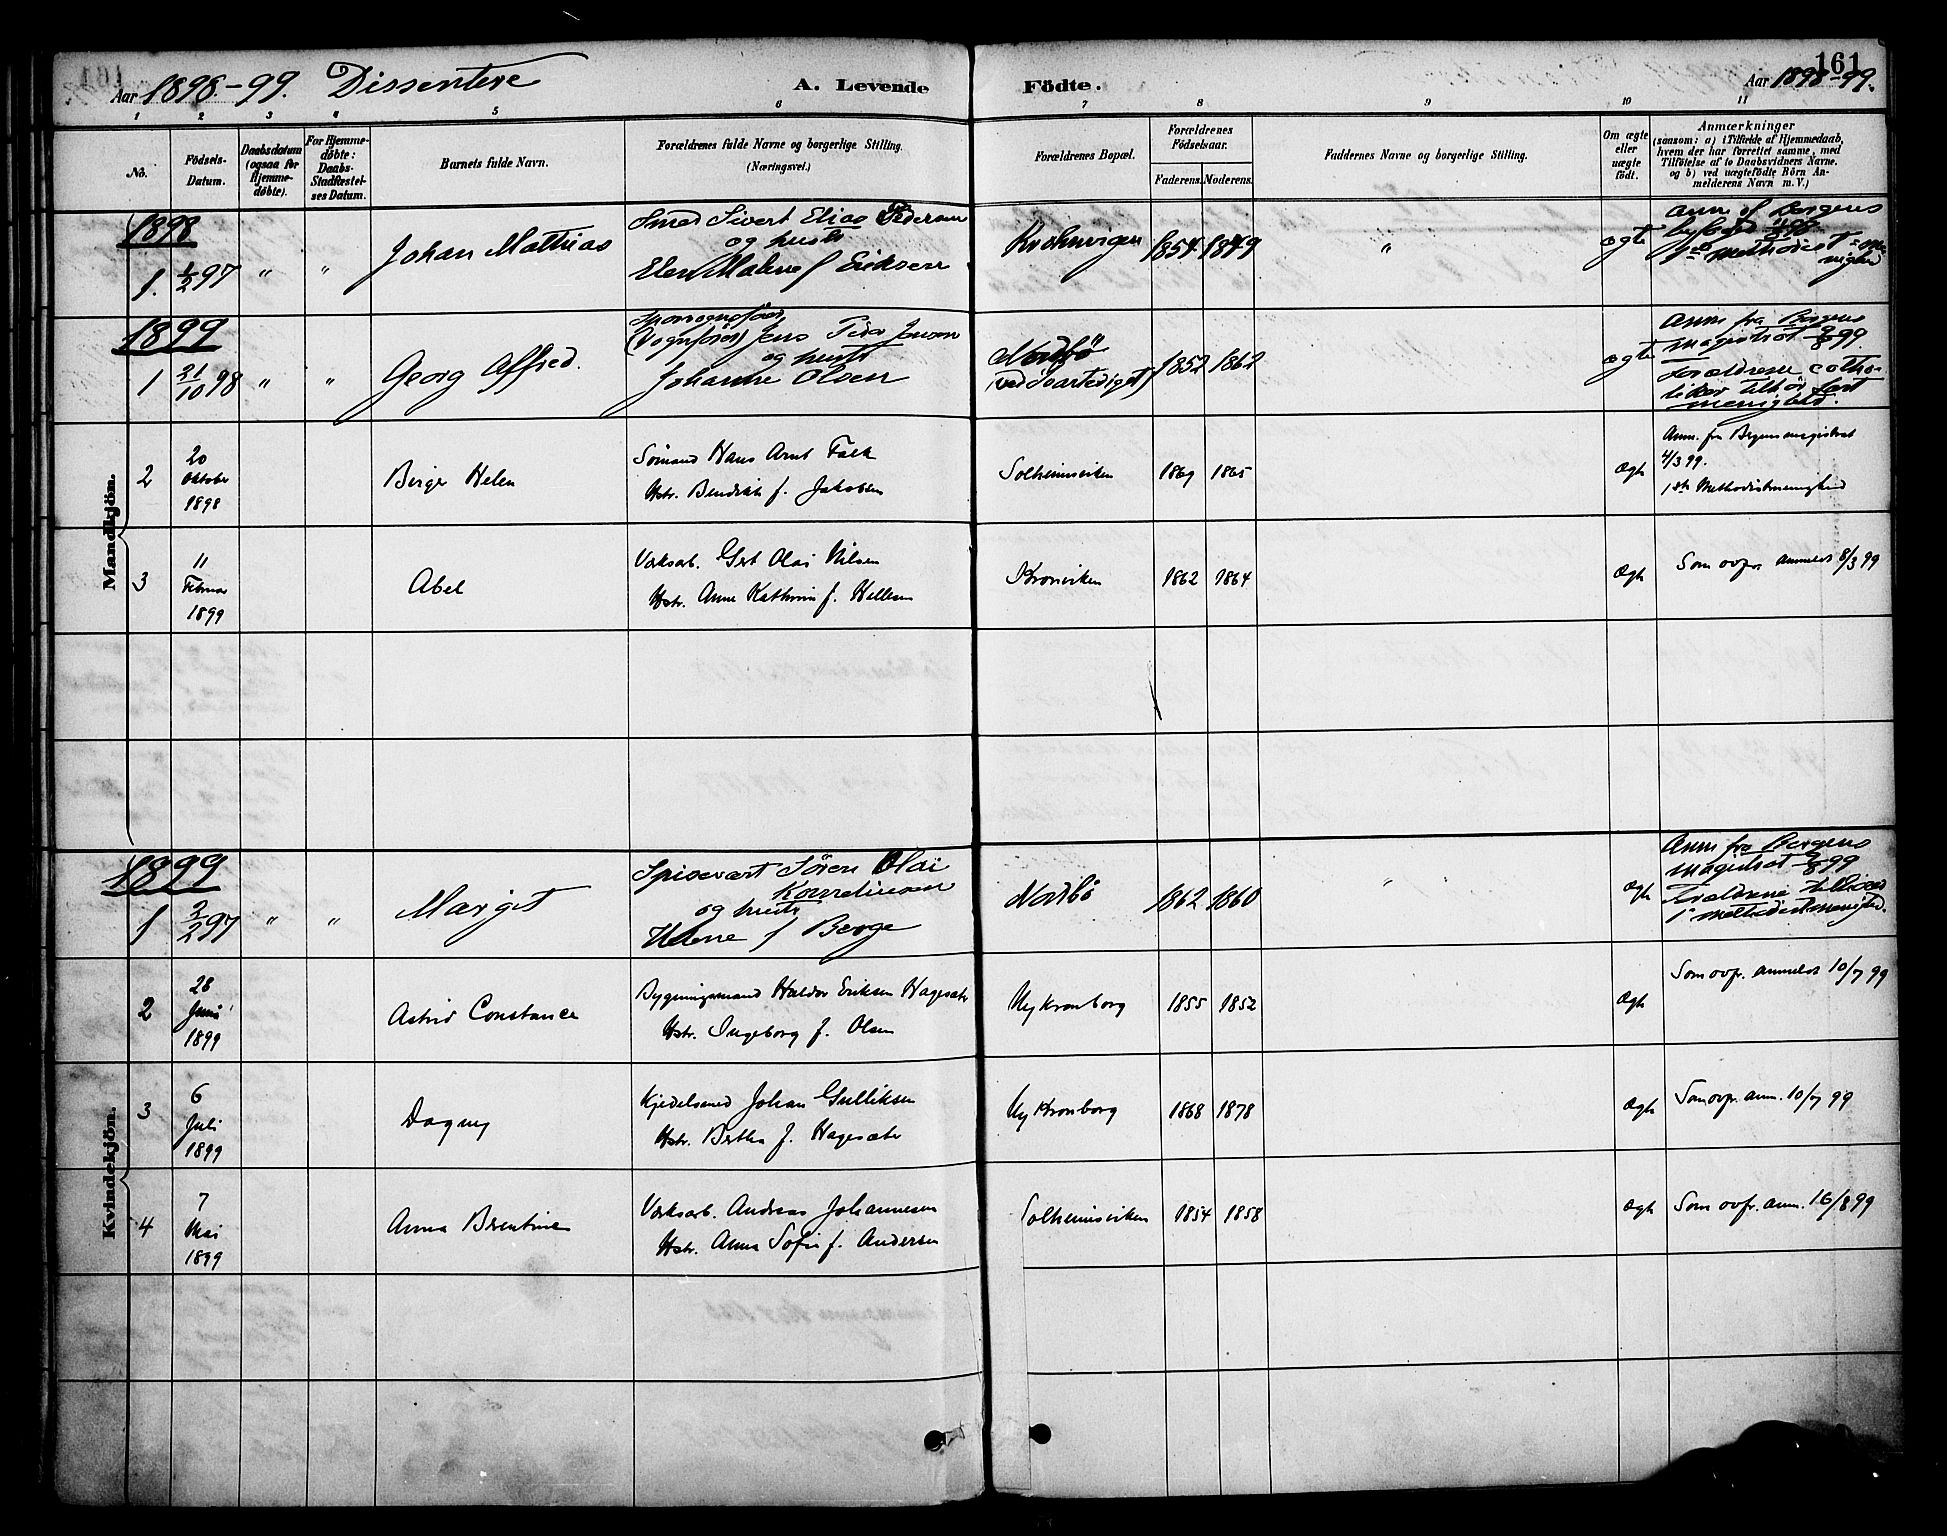 161
Aar 1898-99. Dissentere A. Levende Födte. Aar 1898-99.
1 2 3 4 5 6 7 8 9 10 11
No.
Födsels-
Datum.
Daabsdatum
(ogsaa for
Hjemme-
döbte).
For Hjemme-
döbte:
Daabs-
Stadfæstel-
ses Datum.
Barnets fulde Navn.
Forældrenes fulde Navne og borgerlige Stilling.
(Næringsvei.)
Forældrenes Bopæl.
Forældrenes
Födselsaar.
Faderens. Moderens.
Faddernes Navne og borgerlige Stilling.
Om ægte
eller
uægte
födt.
Anmærkninger
(saasom: a) i Tilfælde af Hjemmedaab,
hvem der har forrettet samme, med
Tilföielse af to Daabsvidners Navne.
og b) ved uægtefödte Börn An-
melderens Navn m. V.)
Mandkjön.
1898
1. 1/2 97 " " Johan Mathias
Smed Sivert Elias Pedersen
og hustr
Elen Malene f Eriksen
Krohnvigen 1854 1849 " ægte
Anm af Bergens
1899
1 21/10 98 " " Georg Alfred.
Sporvognsfører
(Vognfører) Jens Peder Jensen
og hustr
Johanne Olsen
Nordbö
(ved Svartediget) 1852 1862 ægte
Anm fra Bergens
magistrat 9/8 99.
Forældrene catho-
liker tilhör
menighed.
2 20
Oktober
1898
Birger Helen
Sömand Hans Arnt Falk
Hstr. Bendikte f. Jakobsen
Solheimsviken 1869 1865 Ægte
Anm. fra Bergens magistrat
4/3 99.
1ste Methodistmenighed
3 11
Februar
1899
Abel
Værksarb. Gert Olai Nilsen
Hstr. Anne Kathrine f. Hellesen
Kronviken 1862 1864 Ægte
Som ovfor anmeldt 8/3 99
Kvindekjön.
1899
1 2/2 97 " " Margit
Spisevert Sören Olai
Korneliusen
og hustr
f Berge
Nordbö 1862 1860 " Ægte
Anm fra Bergens
magistrat 9/8 99
Forældrene
1ste methodistmenighed.
2 28
Juni
1899
Astrid Constance
Bygningsmand Haldor Eriksen Hagesæter
Hstr. Ingeborg f. Olsen
Ny Kronborg 1855 1852 Ægte
Som ovfr. anmeldt 10/7 99
3 6
Juli
1899
Dagny
Kjedelsmed Johan Gulliksen
Hstr. Bertha f. Hagesæter
Ny Kronborg 1868 1878 Ægte
Som ovfr. anm. 10/7 99
4 7
Mai
1899
Anna Berentine
Værksarb. Andreas Johannesen
Hstr. Anna Sofie f. Andersen
Solheimsviken 1854 1858 Ægte
Som ovfr. anm. 16/8 99